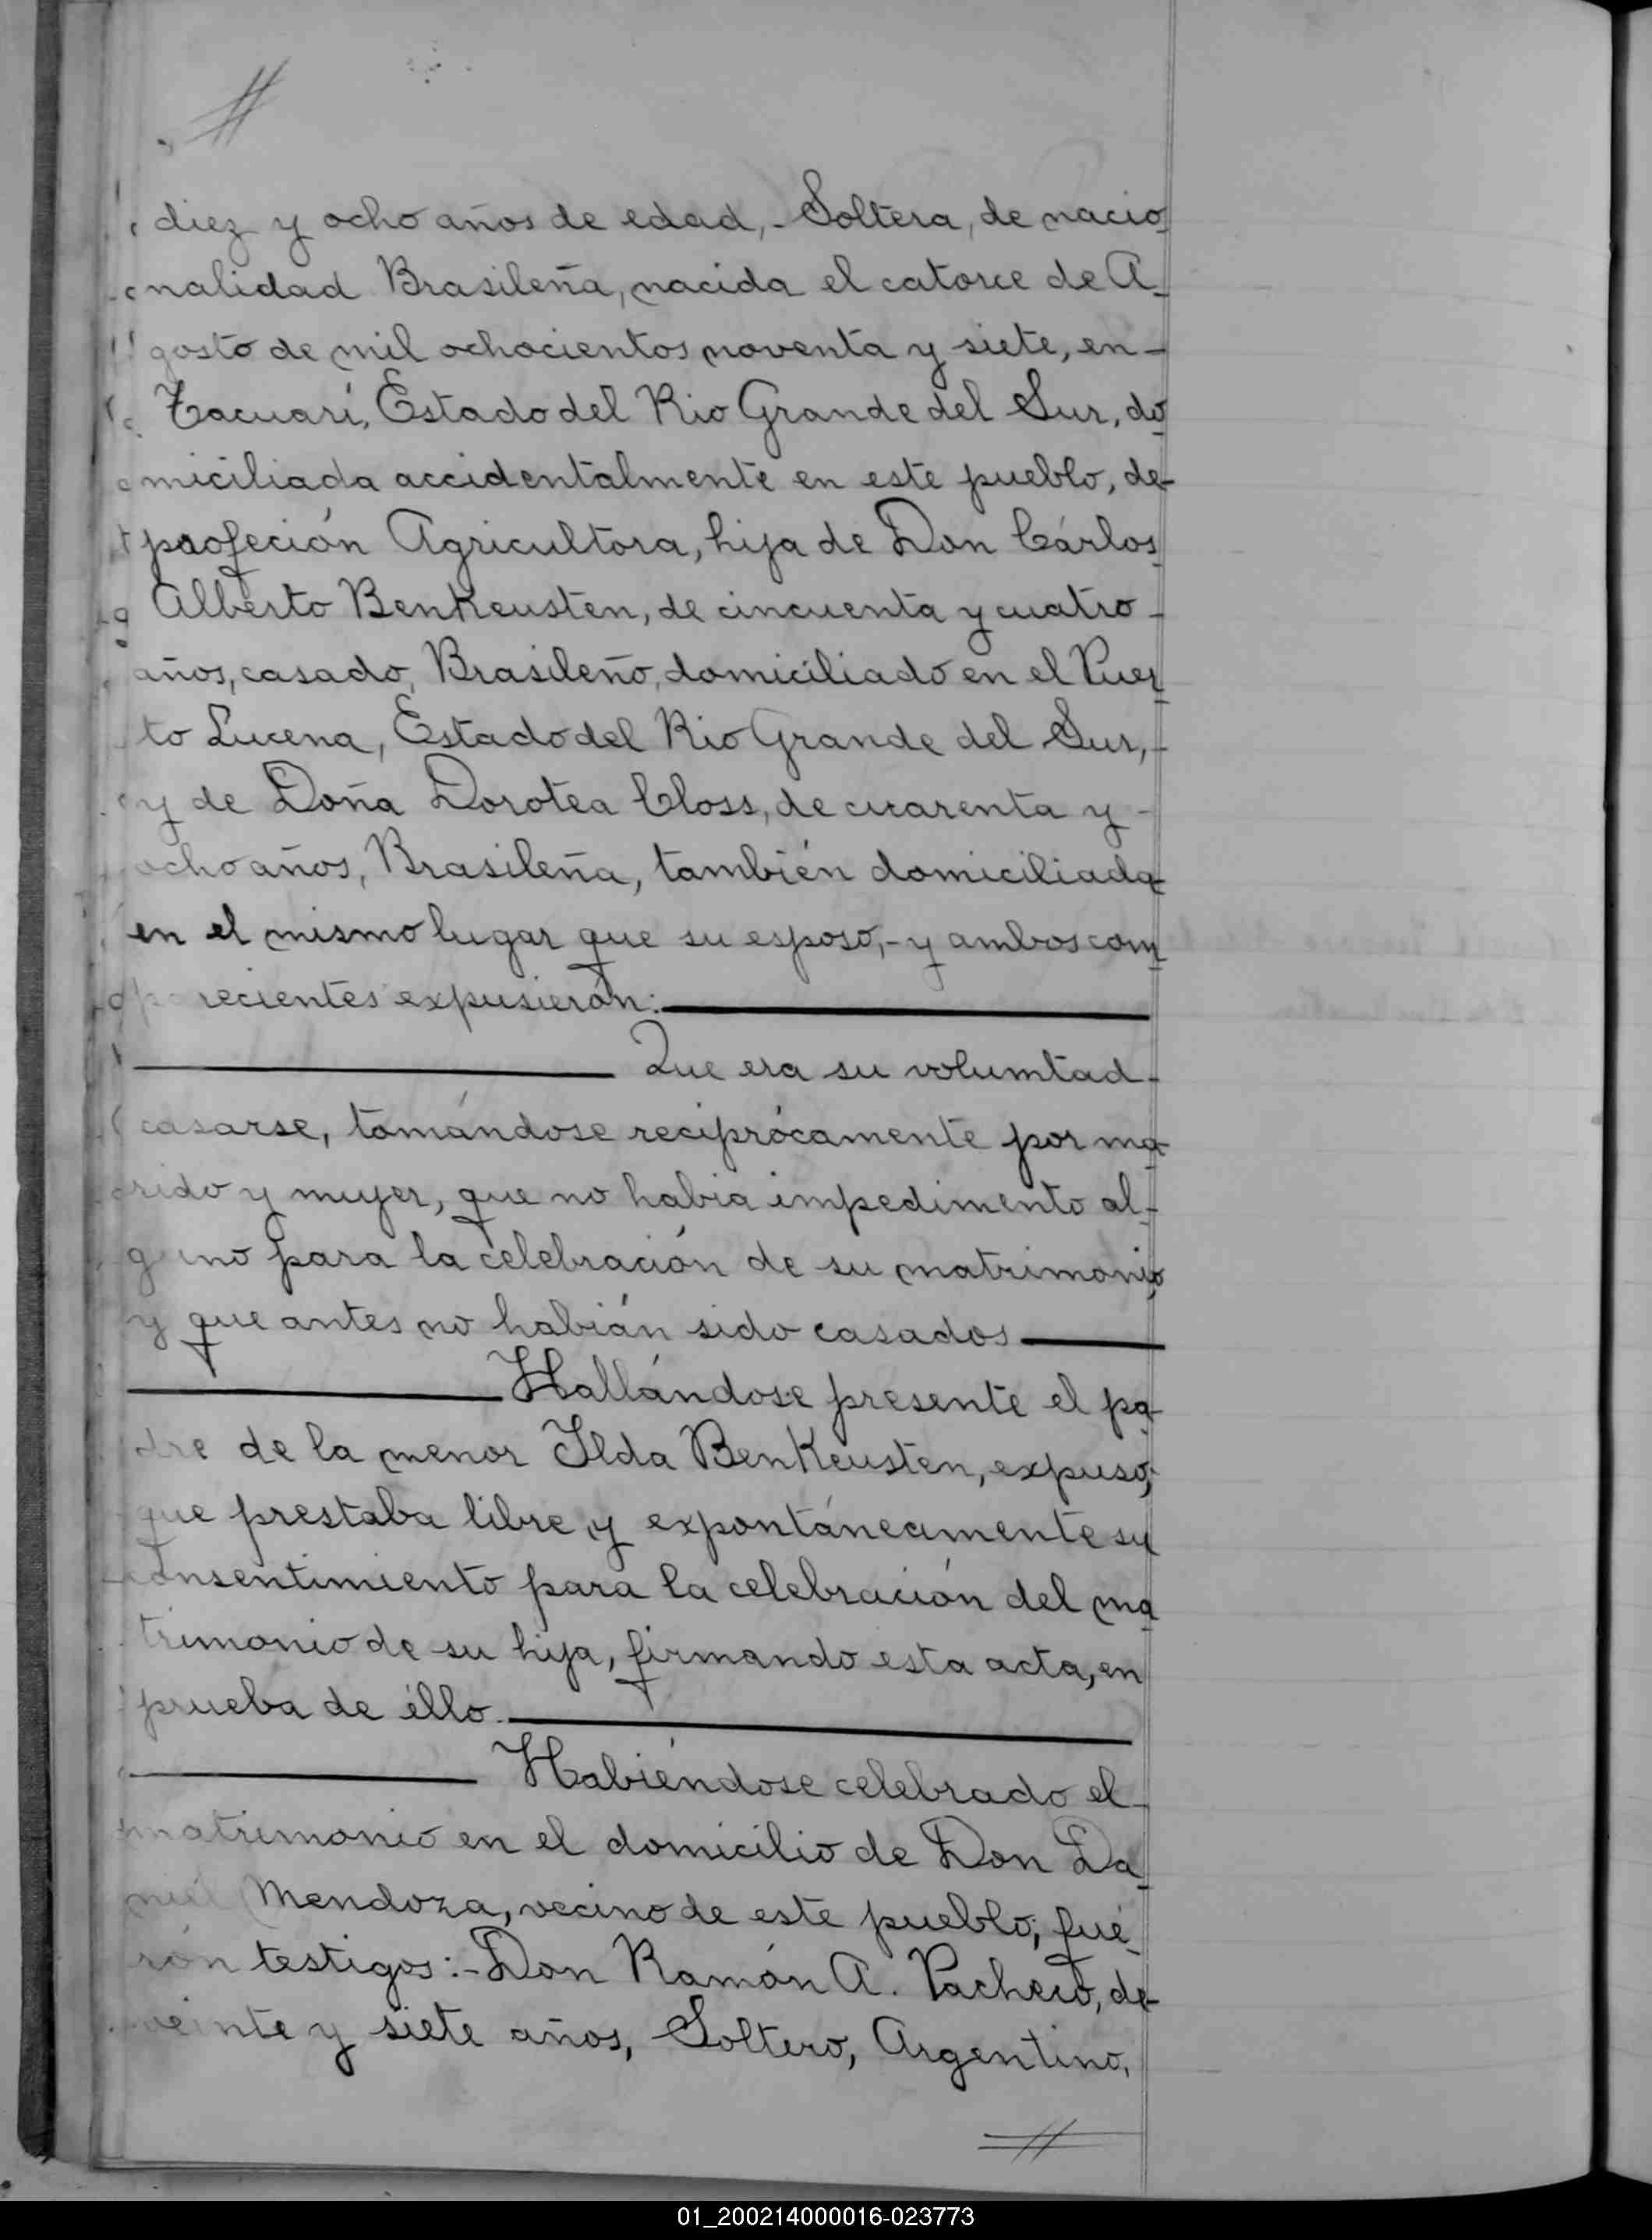 diez y ocho años de edad,- Soltera, de nacio
nalidad Brasileña, nacida el catorce de A-
gosto de mil ochocientos noventa y siete, en-
Tacuarí, Estado del Rio Grande del Sur, do
miciliada accidentalmente en este pueblo, de-
profeción Agricultora, hija de Don Cárlos
Alberto BenKeusten, de cincuenta y cuatro-
años, casado, Brasileño, domiciliado en el Puer
to Lucena, Estado del Rio Grande del Sur,-
y de Doña Dorotea Closs, de cuarenta y-
ocho años, Brasileña, también domiciliada-
en el mismo lugar que su esposo,- y ambos com
parecientes expusierón:
Que era su volumtad-
casarse, tomándose reciprócamente por ma-
rido y mujer, que no habia impedimento al-
guno para la celebración de su matrimonio,
y que antes no habián sido casados
Hallándose presente el pa-
dre de la menor Ilda BenKeusten, expuso,
que prestaba libre y expontáneamente su
consentimiento para la celebración del ma
trimonio de su hija, firmando esta acta, en
prueba de éllo.
Habiéndose celebrado el-
matrimonio en el domicilio de Don Da
niel Mendoza, vecino de este pueblo; fué-
rón testigos:- Don Ramón A. Pacheco, de-
veinte y siete años, Soltero, Argentino,
01_200214000016-023773